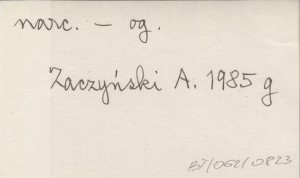 narc. – og.
Zaczyński A. 1985 g
BT/062/0823